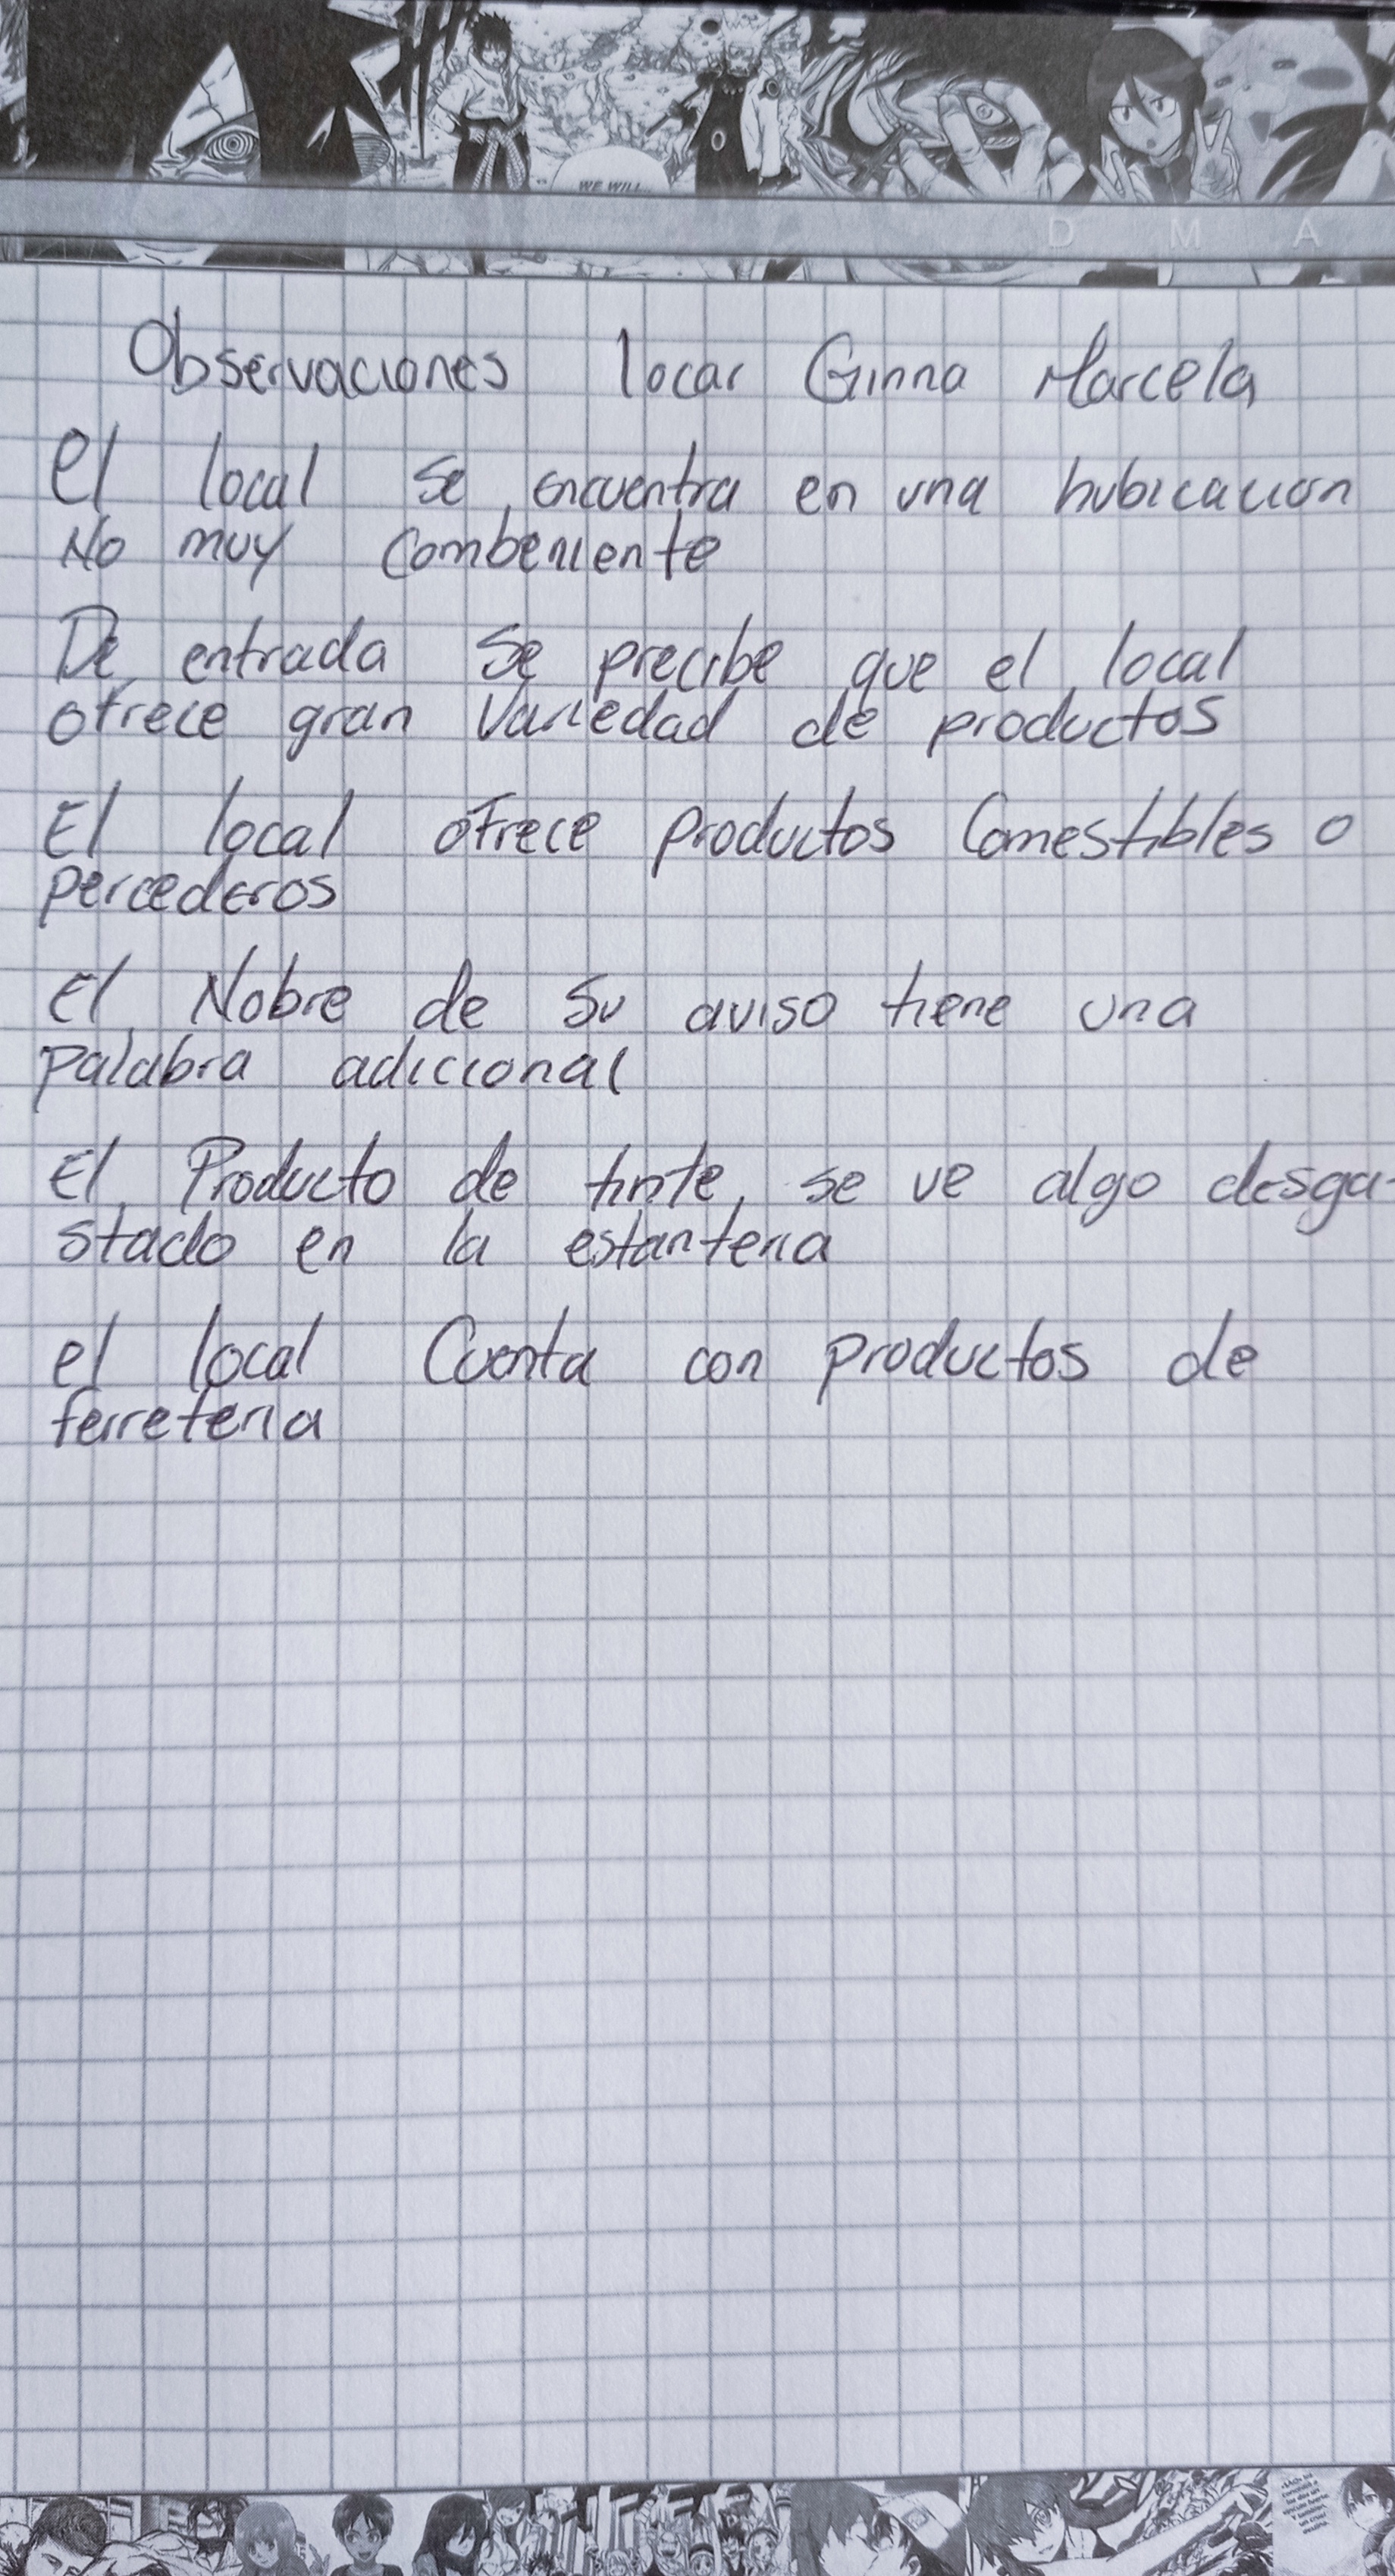 WE WILL...
D M A
Observaciones locar Ginna Marcela
El local se encuentra en una hubicacion
No muy combeniente
De entrada se precibe que el local
ofrece gran variedad de productos
El local ofrece productos comestibles o
percederos
El Nobre de su aviso tiene una
palabra adicional
El Producto de tinte, se ve algo desga-
stado en la estanteria
el local Cuenta con productos de
ferreteria